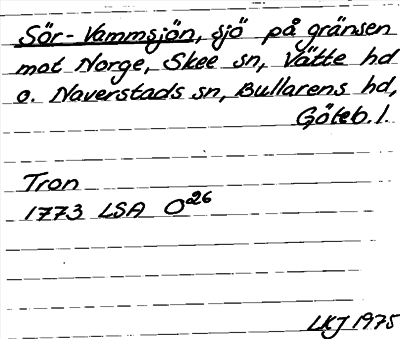 Sör-Vammsjön, sjö på gränsen
mot Norge, Skee sn, Vätte hd
o. Naverstads sn, Bullarens hd,
Göteb. l.
Tron
1773 LSA O²⁶
LKJ 1975